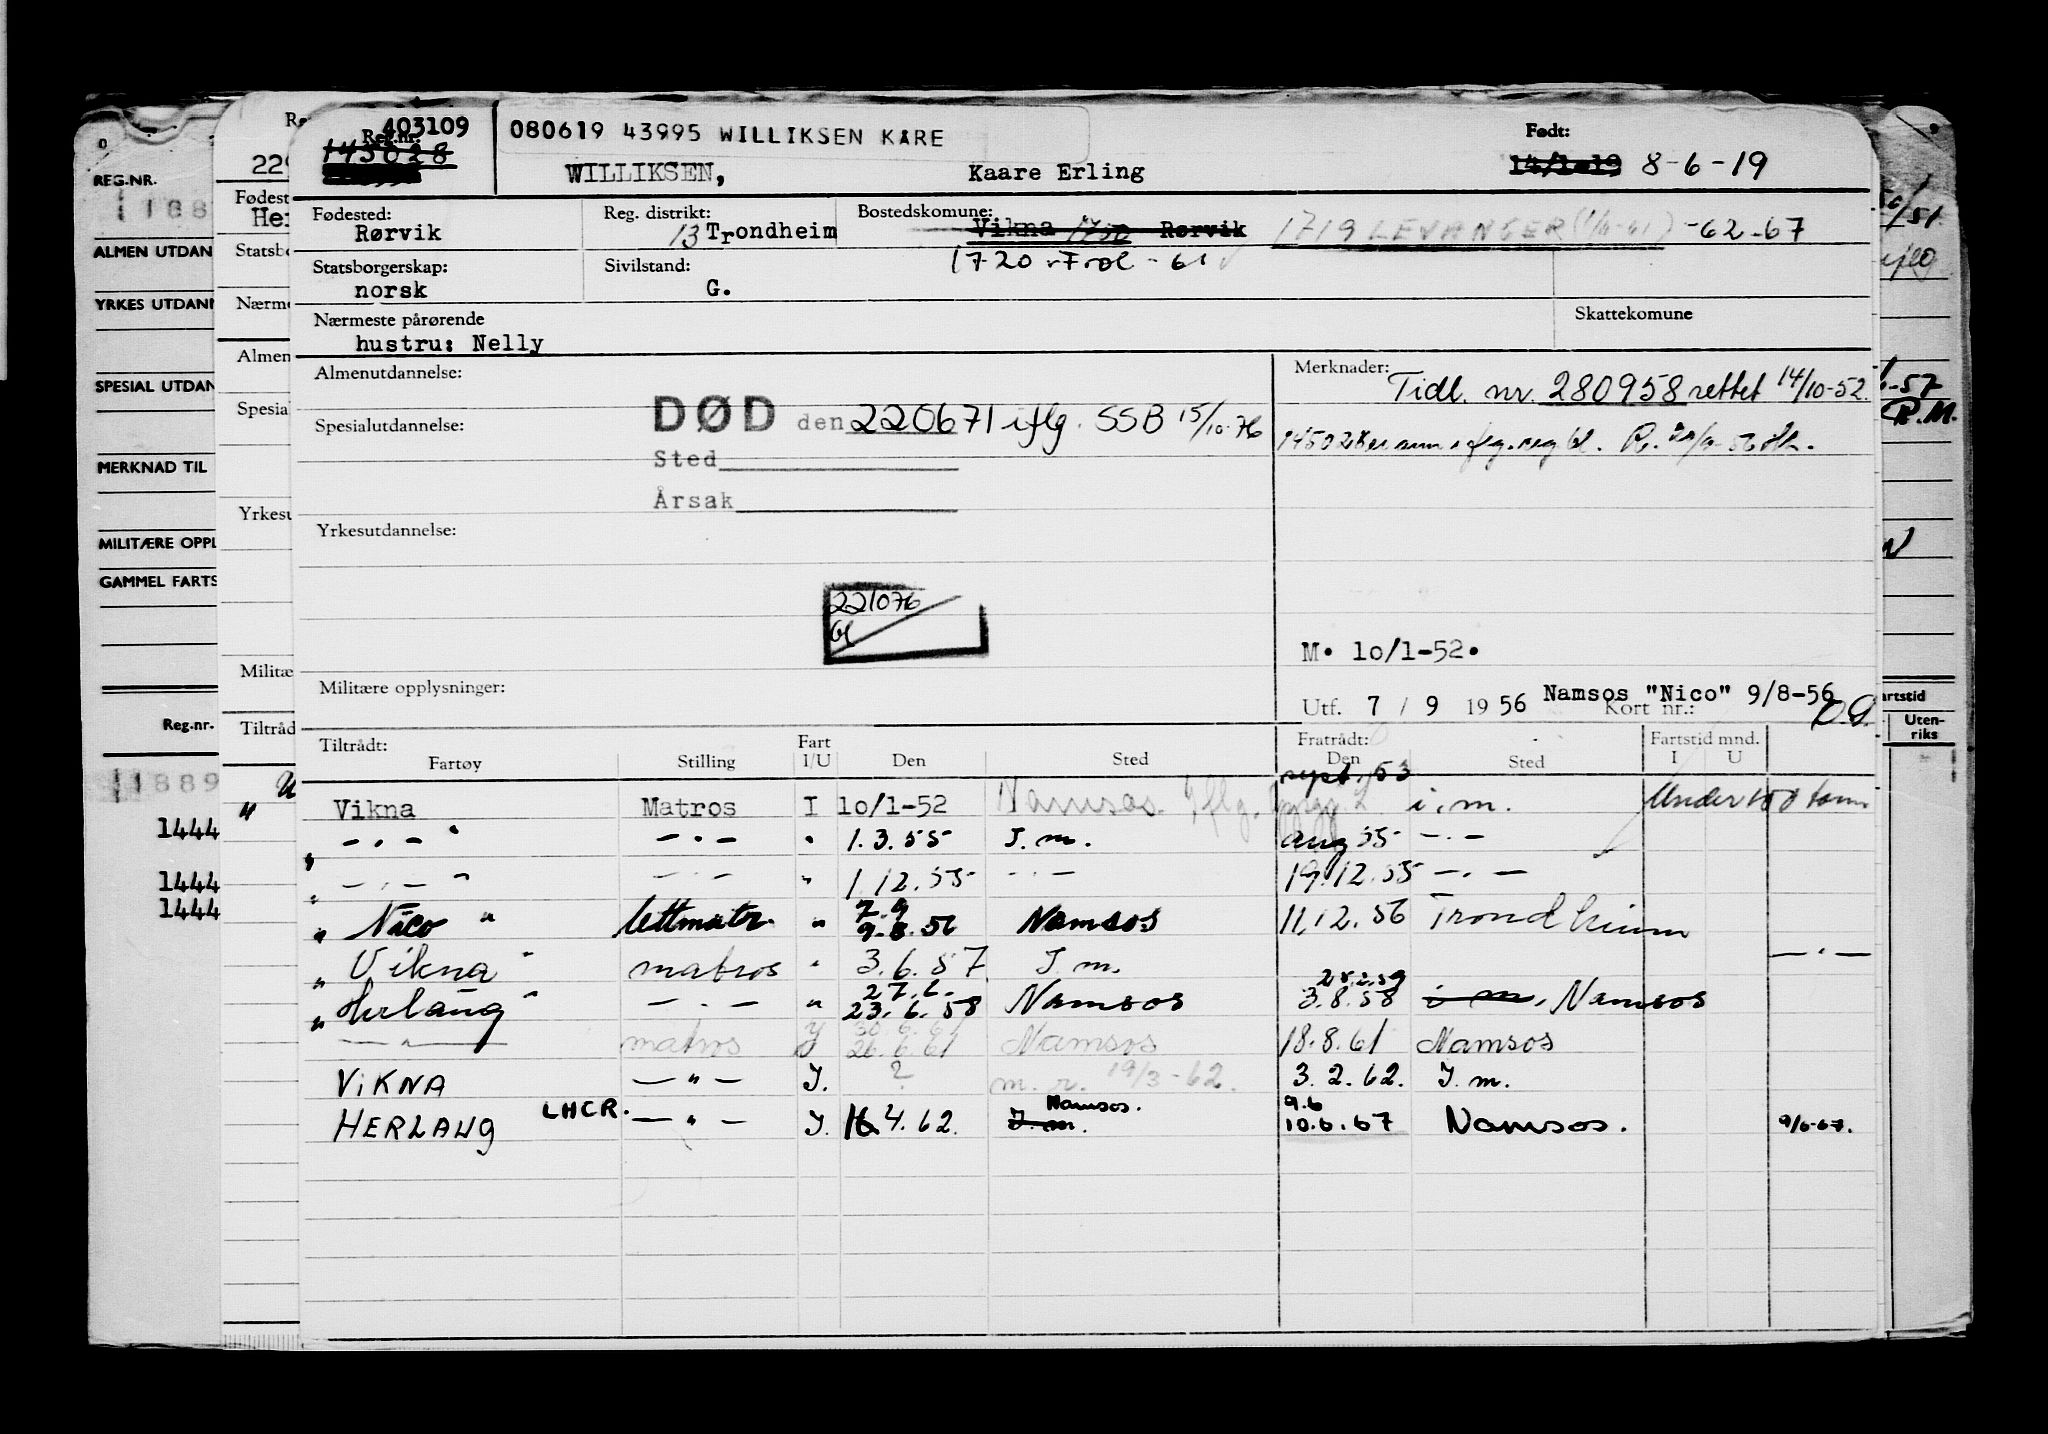 403109
Reg.nr.
145028
080619 43995 WILLIKSEN KARE
WILLIKSEN, Kaare Erling
Født:
14/1-19 8-6-19
Fødested: Rørvik
Reg. distrikt: 13 Trondheim
Bostedskomune: Vikna 1750 Rørvik 1719 LEVANGER (1/6-61) -62-67
1720 Frol - 61
Statsborgerskap: norsk
Sivilstand: G.
Nærmeste pårørende
hustru: Nelly
Skattekomune
Almenutdannelse:
DØD den 220671 iflg. SSB 15/10-76
Spesialutdannelse:
Sted
Årsak
Yrkesutdannelse:
221076
Militære opplysninger:
Merknader: Tidl. nr. 280958 rettet 14/10-52.
M. 10/1-52.
Utf. 7 / 9 19 56 Namsos "Nico" 9/8-56
Kort nr.:
Tiltrådt: Fratrådt: Fartstid mnd.
Fartøy Stilling Fart I/U Den Sted Den Sted I U
Vikna Matros I 10/1-52 Namsos. sept. 53 i.m. Under 100 tonn
" — . — " — . — " 1.3.55 I.m. aug 55 — . —
" — . — " — . — " 1.12.55 — . — 19.12.55 — . —
" Nico " lettmatr. " 7.9 9.8.56 Namsos 11.12.56 Trondheim
" Vikna " matros " 3.6.57 I.m. — . —
" Herlaug " — . — " 27.6. 23.6.58 Namsos 28.2.59 3.8.58 i m. Namsos
— " — matros I 30.6.61 26.6.61 Namsos 18.8.61 Namsos
VIKNA — " — I. ? m.r. 19/3-62. 3.2.62. I.m.
HERLAUG LHCR. — " — I. 16.4.62. I.m. Namsos. 9.6 10.6.67 Namsos. 9/6-67.
REG.NR.
188
ALMEN UTDAN
YRKES UTDANN
SPESIAL UTDAN
MERKNAD TIL
MILITÆRE OPPL
GAMMEL FARTS
Reg.nr.
1889
1444
1444
1444
Re
229
Fødest
He
Statsbo
Nærme
Almen
Spesial
Yrkesu
Militæ
Tiltråd
/51.
-57
R.M.
artstid
Uten-
riks